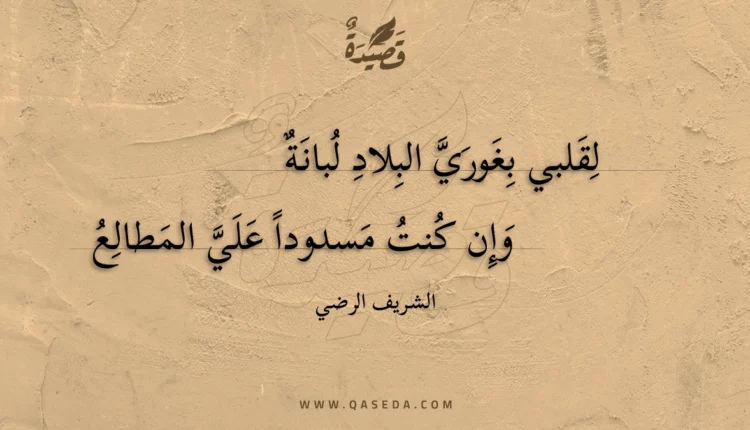 قَصِيدَةٌ
لِقَلبي بِغَورَيَّ البِلادِ لُبانَةٌ
وَإِن كُنتُ مَسدوداً عَلَيَّ المَطالِعُ
الشريف الرضي
WWW.QASEDA.COM